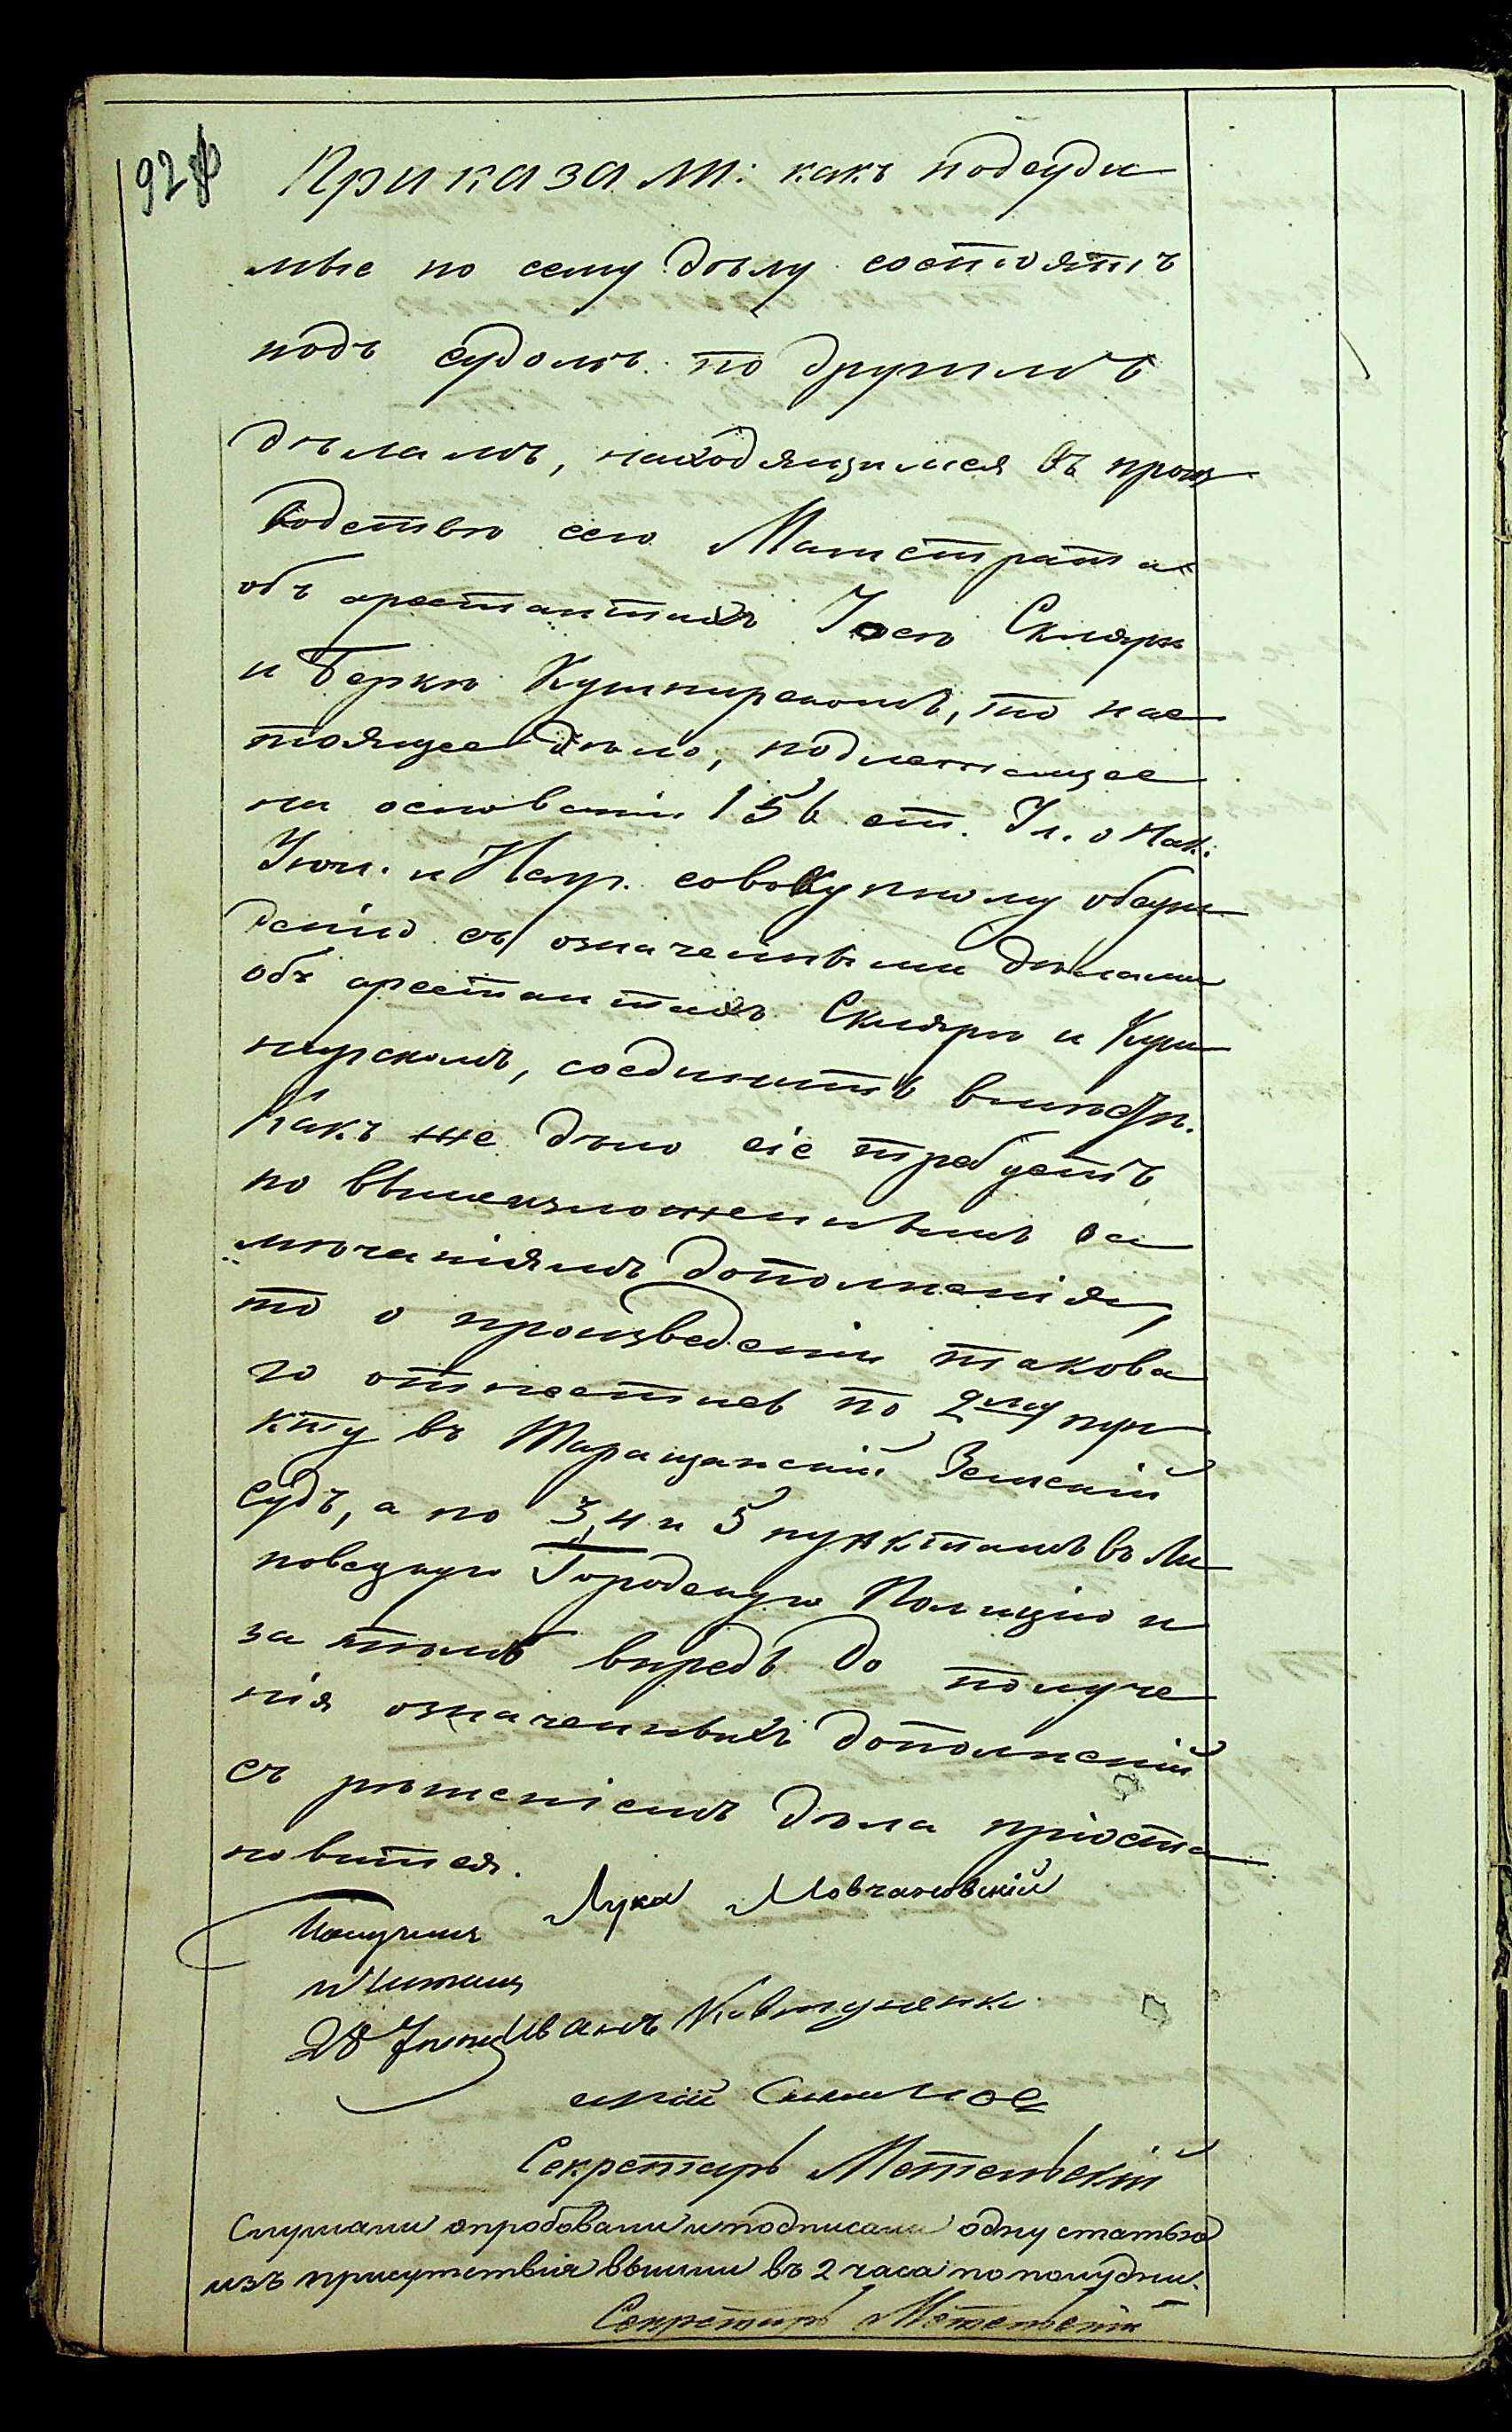 92
Приказали: какъ подсуди
мые по сему дѣлу состоятъ
подъ судомъ по другимъ
дѣламъ, находящимся въ произ
водствѣ сего Магистрата
объ арестантахъ Іосѣ Склярѣ
и Беркѣ Кушнирскомъ, то нас
тоящее дѣло, подлежащее
на основаніи 156 ст. Ул. о Нак.
Угол. и Испр. совокупному обсуж
денію съ означенными дѣлами
объ арестантахъ Склярѣ и Куш
нирскомъ, соединить вмѣстѣ.
Какъ же дѣло сіе требуетъ
по вышеизложеннымъ за
мѣчаніямъ дополненія,
то о произведеніи такова
го отнестись по 2му пун
кту въ Таращанскій Земскій
судъ, а по 3, 4 и 5 пунктамъ въ Ли
повецкую Городскую Полицію и
за тѣмъ впредь до получе
нія означенныхъ дополненій
съ рѣшеніемъ дѣла пріоста
новиться.
Лука Мовчановскій
Получилъ
и читалъ
28 Іюня
Иванъ Ковтуненко
Секретарь Метельскій
Слушали опробовали и подписали одну статью
изъ присутствія вышли въ 2 часа по полудни.
Секретарь Метельскій